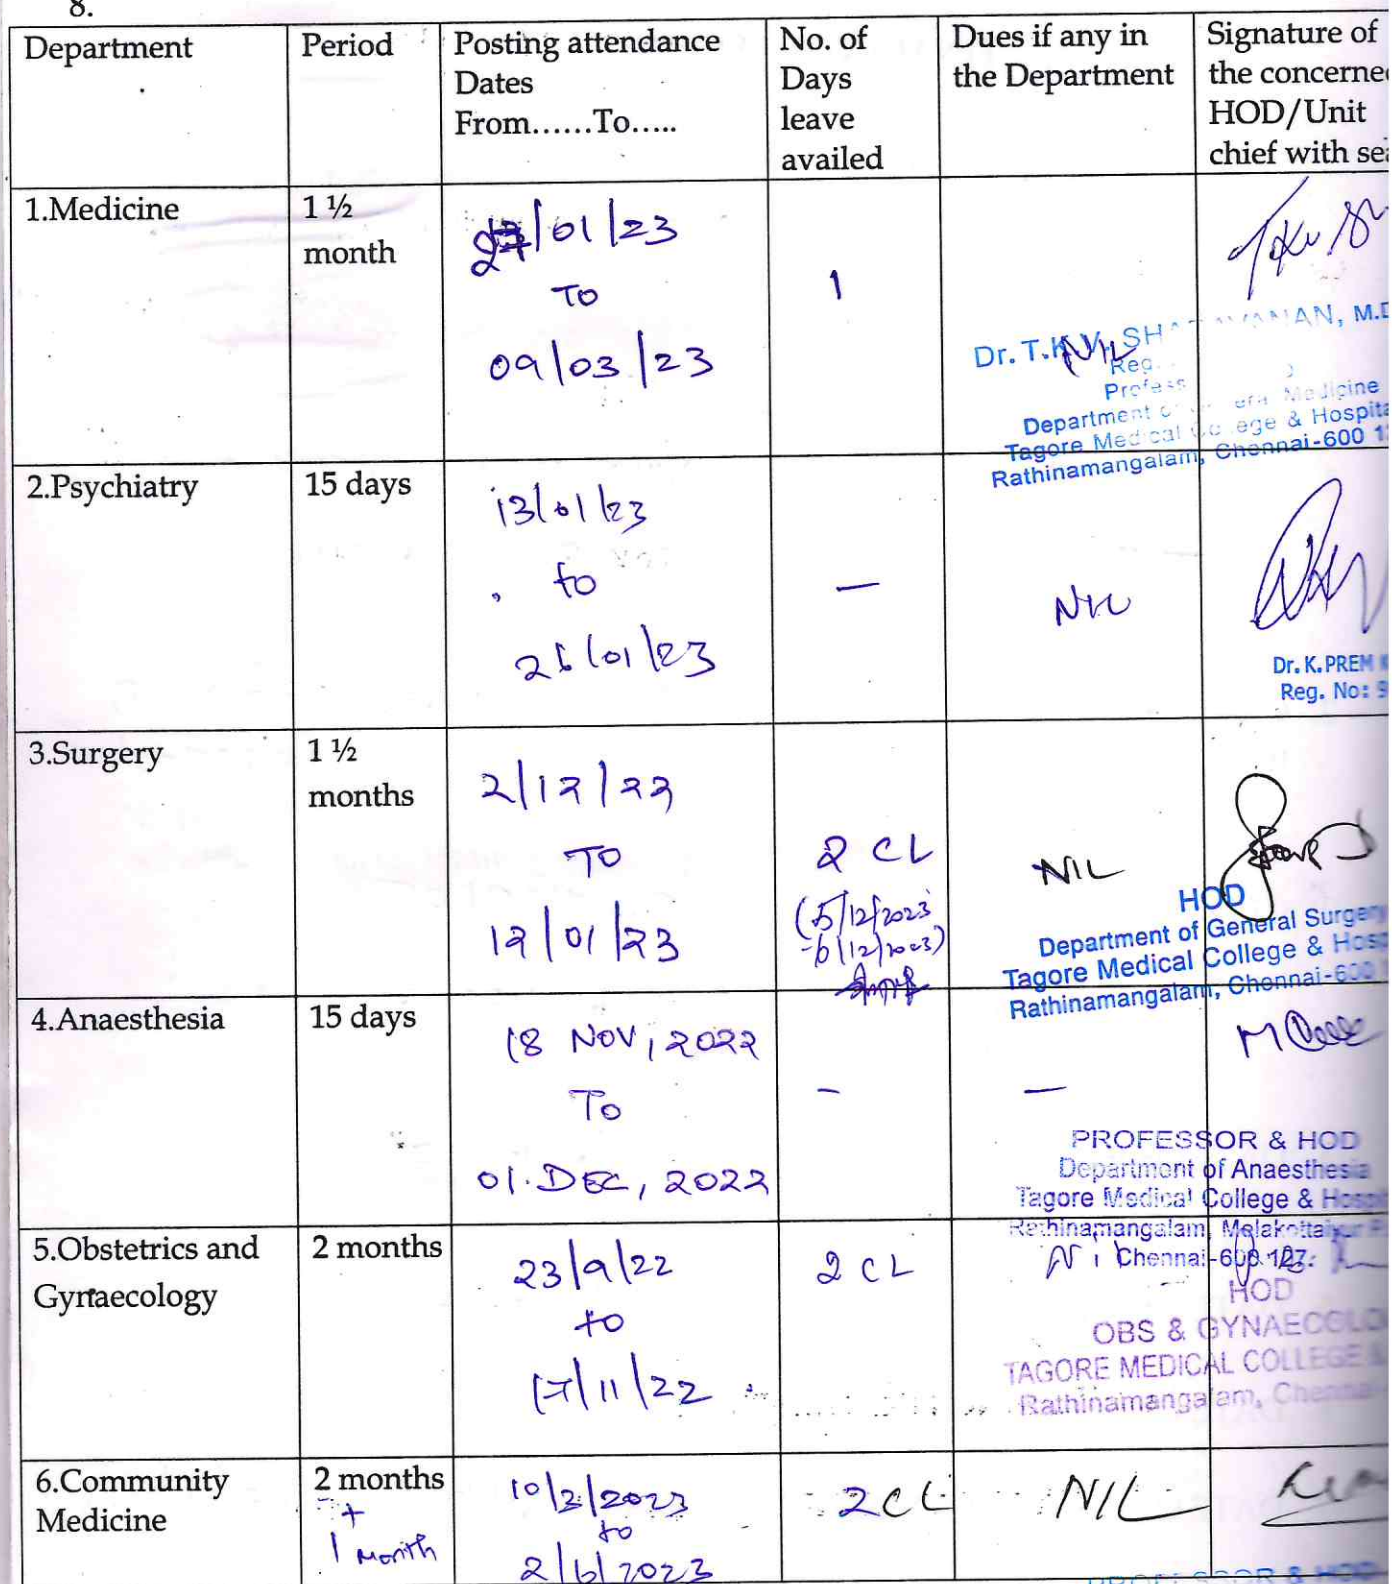 8.
Department
Period
Posting attendance
Dates
From......To.....
No. of
Days
leave
availed
Dues if any in
the Department
Signature of
the concerne
HOD/Unit
chief with sea
1.Medicine
1 ½
month
27/01/23
TO
09/03/23
1
NIL
Dr. T.K.V. SHARAVANAN, M.D
Reg.
Profess
Department of General Medicine
Tagore Medical College & Hospita
Rathinamangalam, Chennai-600 1
2.Psychiatry
15 days
13/01/23
to
26/01/23
—
NIL
Dr. K.PREM K
Reg. No: 9
3.Surgery
1 ½
months
2/12/22
TO
12/01/23
2 CL
(5/12/2023
-6/12/2023)
NIL
HOD
Department of General Surgery
Tagore Medical College & Hosp
Rathinamangalam, Chennai-600
4.Anaesthesia
15 days
18 NOV, 2022
To
01. DEC, 2022
–
—
PROFESSOR & HOD
Department of Anaesthesia
Tagore Medical College & Hospi
Rathinamangalam, Melakottaiyur P
Chennai-600 127.
5.Obstetrics and
Gynaecology
2 months
23/9/22
to
17/11/22
2 CL
HOD
OBS & GYNAECOLO
TAGORE MEDICAL COLLEGE &
Rathinamangalam, Chennai
6.Community
Medicine
2 months
+
1 month
10/2/2023
to
2/6/2023
2CL
NIL
PROFESSOR & HOD